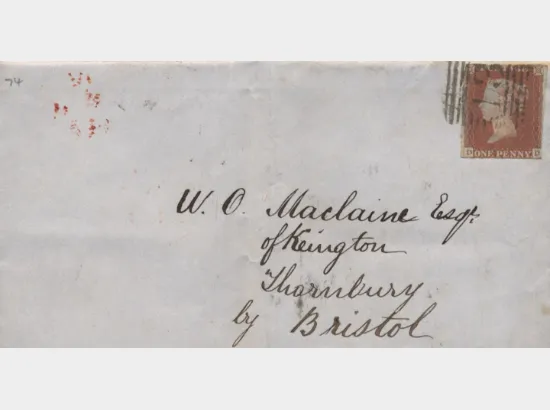 74
ONE PENNY
W. O. Maclaine Esqr.
of Keington
Thornbury
by Bristol